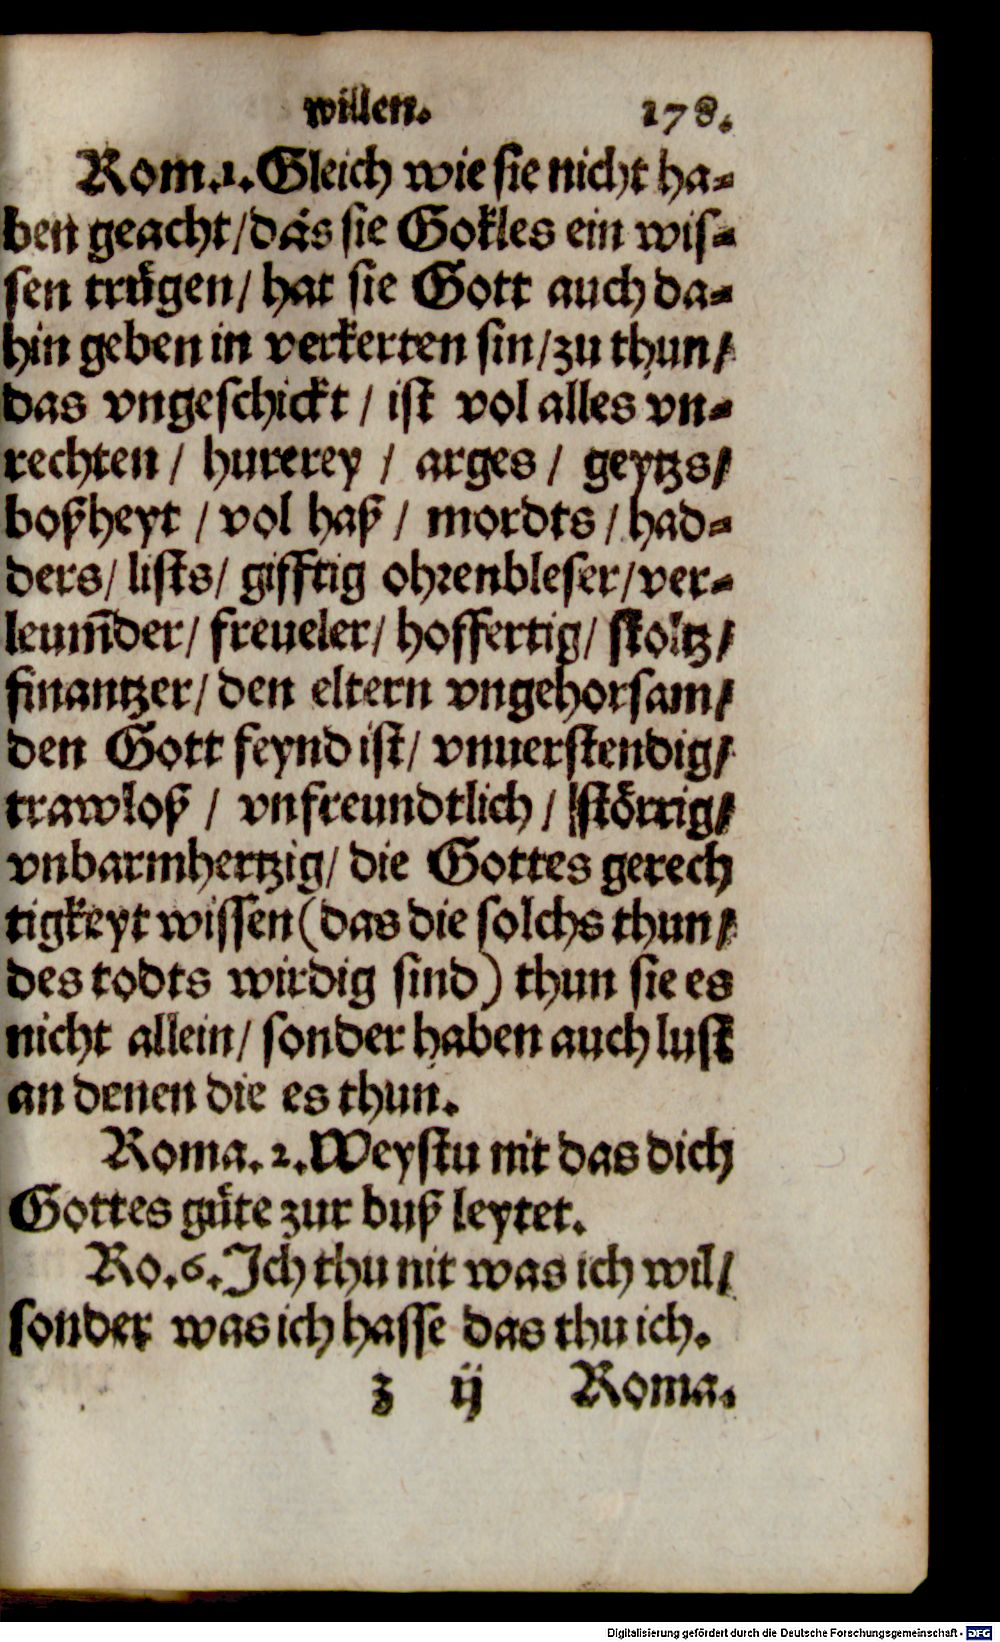 willen. 178.
Rom.1. Gleich wie sie nicht ha-
ben geacht/das sie Gottes ein wis-
sen trügen/ hat sie Gott auch da-
hin geben in verkerten sin/zu thun/
das vngeschickt / ist vol alles vn-
rechten / hurerey / arges / geytzs/
boßheyt / vol haß / mordts / had-
ders/ lists/ gifftig ohrenbleser/ver-
leum̄der/ freueler/ hoffertig/ stoltz/
finantzer/ den eltern vngehorsam/
den Gott feynd ist/ vnuerstendig/
trawloß / vnfreundtlich / störrig/
vnbarmhertzig/ die Gottes gerech
tigkeyt wissen (das die solchs thun/
des todts wirdig sind) thun sie es
nicht allein/ sonder haben auch lust
an denen die es thun.
Roma. 2. Weystu nit das dich
Gottes güte zur buß leytet.
Ro. 6. Ich thu nit was ich wil/
sonder was ich hasse das thu ich.
z ij Roma.
Digitalisierung gefördert durch die Deutsche Forschungsgemeinschaft - DFG